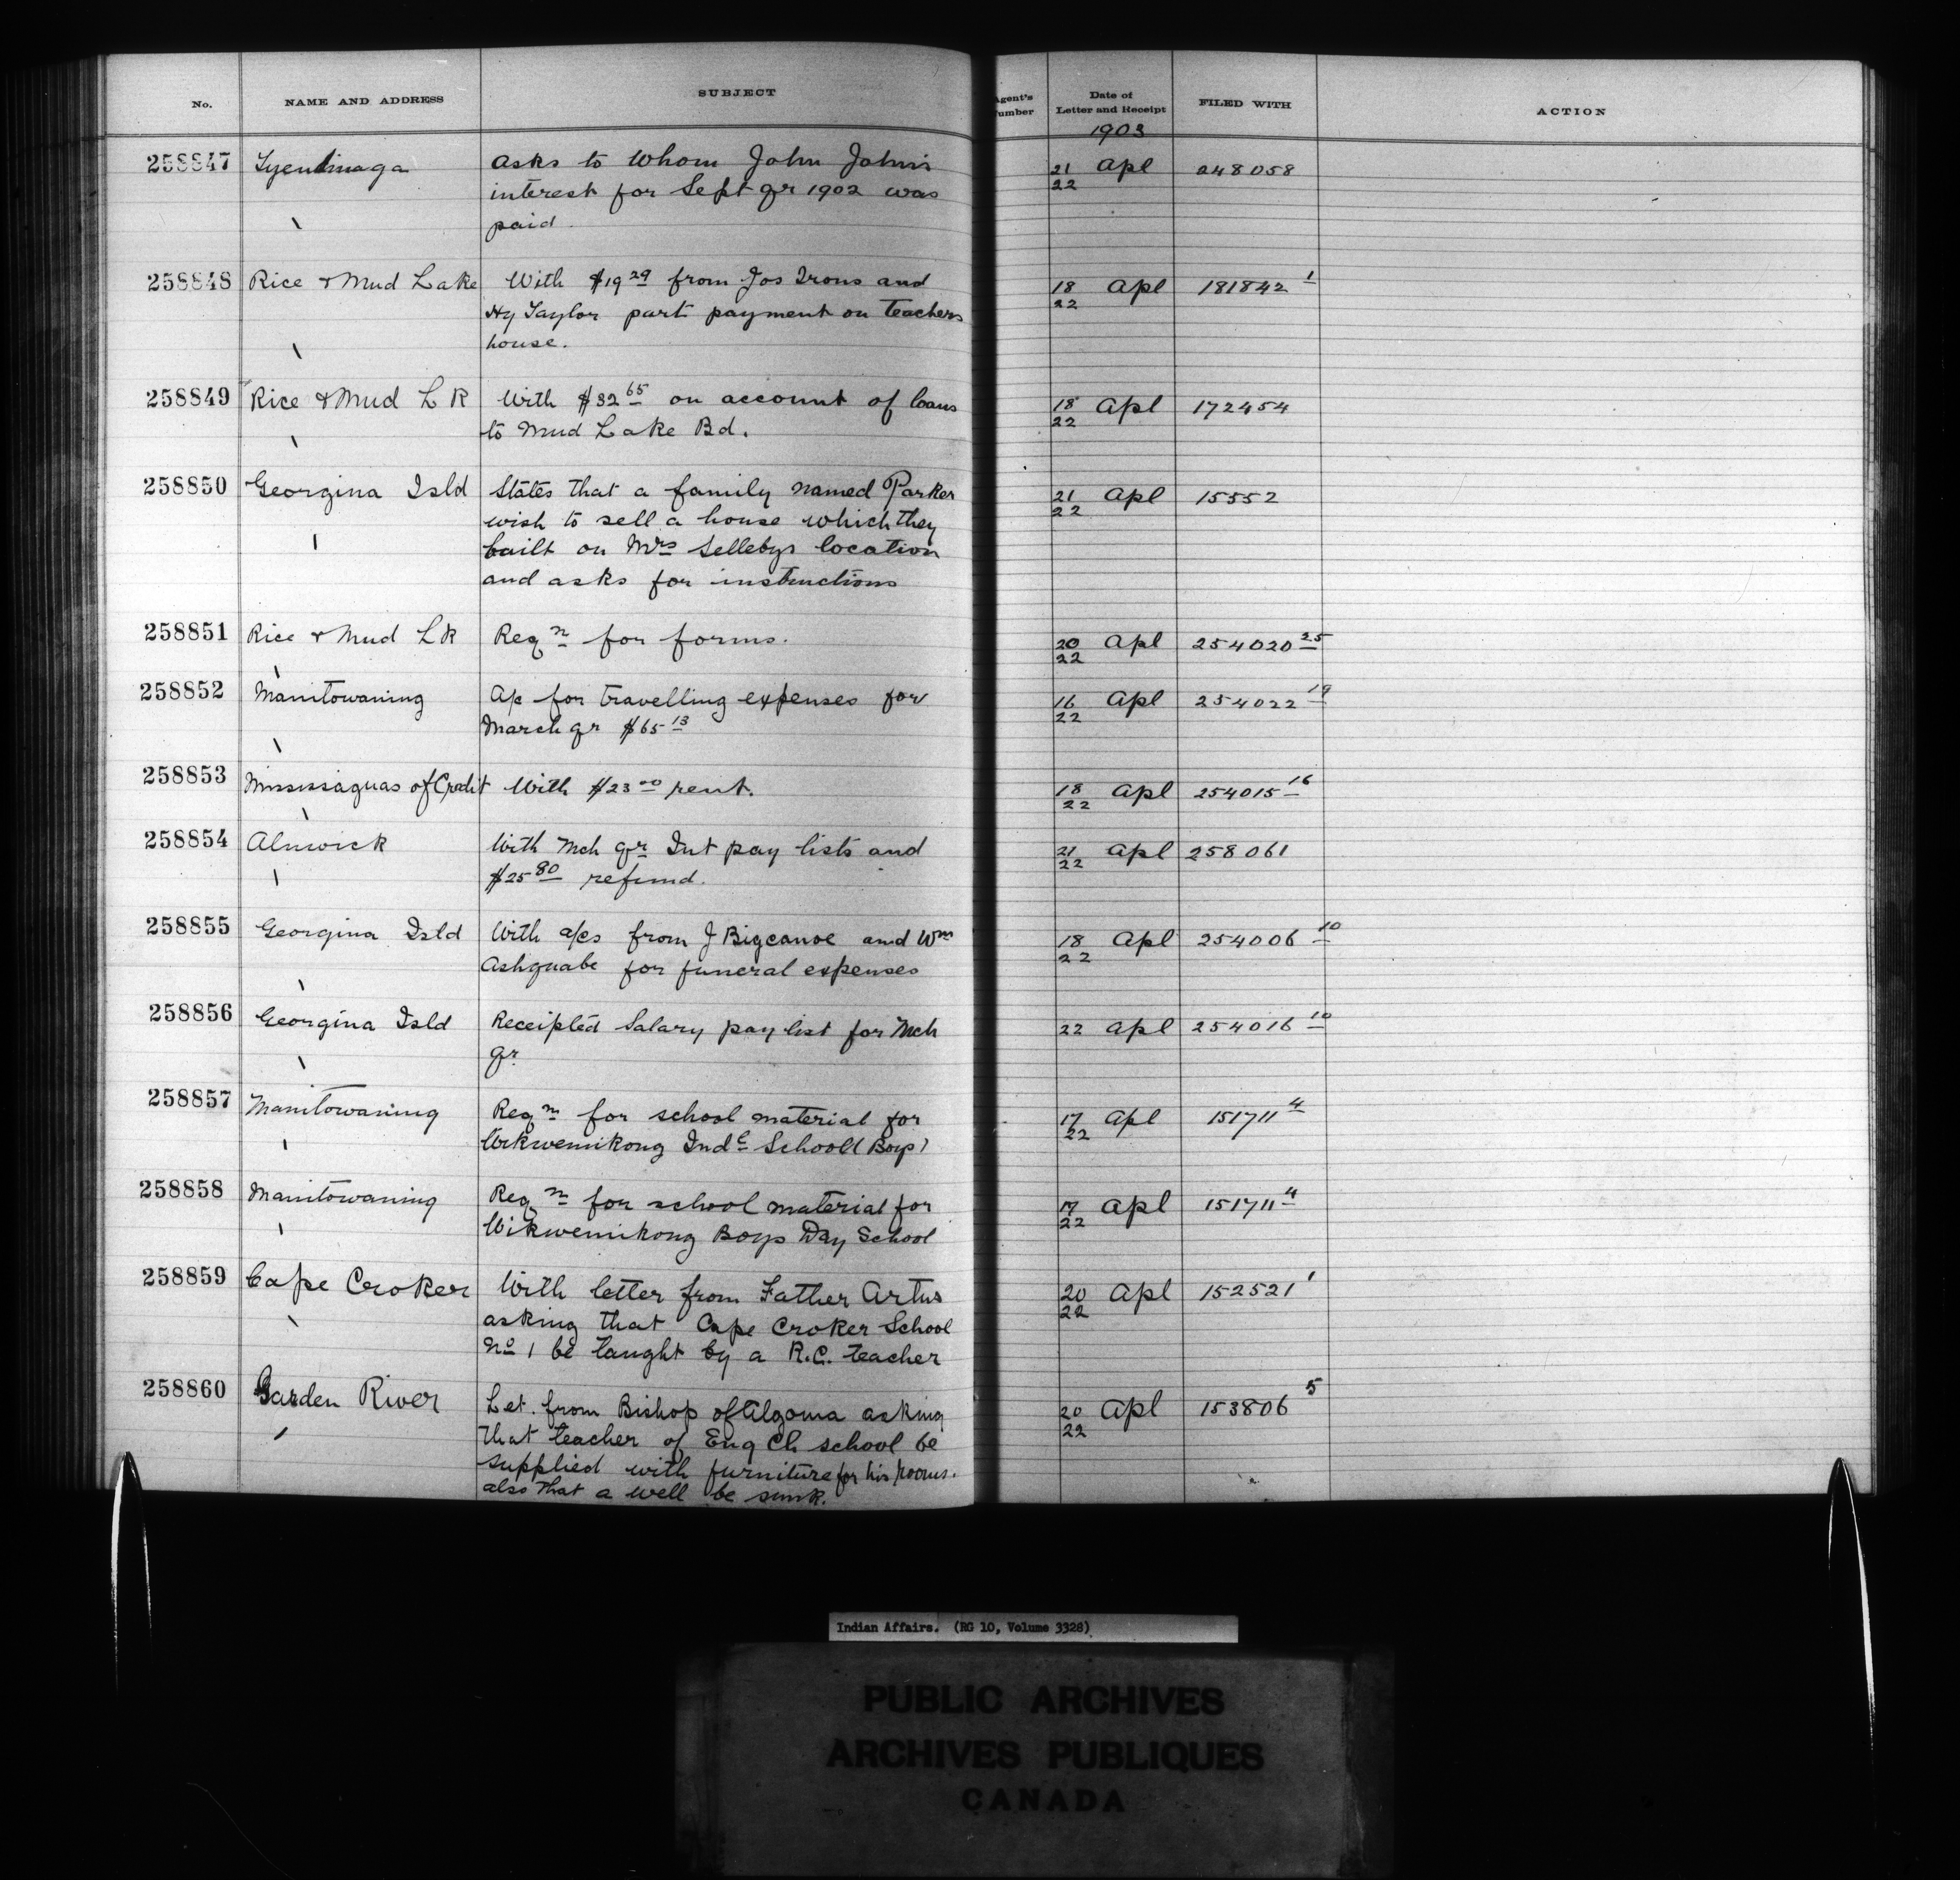 No. NAME AND ADDRESS SUBJECT Agent's Number Date of Letter and Receipt FILED WITH ACTION
1903
258847 Tyendinaga Asks to whom John John's 21/22 Apl 248058
interest for Sept qr 1902 was
paid.
258848 Rice & Mud Lake With $19 29 from Jos Irons and 18/22 Apl 181842 1
Hy Taylor part payment on teachers
house.
258849 Rice & Mud LK With $32 65 on account of loans 18/22 Apl 172454
to Mud Lake Bd.
258850 Georgina Isld States that a family named Parker 21/22 Apl 15552
wish to sell a house which they
built on Mrs Sellebys location
and asks for instructions
258851 Rice & Mud LK Reqn for forms. 20/22 Apl 254020 25
258852 Manitowaning A/c for travelling expenses for 16/22 Apl 254022 19
March qr $65 13
258853 Mississaguas of Credit With $23 00 rent. 18/22 Apl 254015 16
258854 Alnwick With Mch qr Int pay lists and 21/22 Apl 258061
$25 80 refund.
258855 Georgina Isld With a/cs from J Bigcanoe and Wm 18/22 Apl 254006 10
Ashquabe for funeral expenses
258856 Georgina Isld Receipted Salary pay list for Mch 22 Apl 254016 10
qr
258857 Manitowaning Reqn for school material for 17/22 Apl 151711 4
Wikwemikong Indl School (Boys)
258858 Manitowaning Reqn for school material for 17/22 Apl 151711 4
Wikwemikong Boys Day School
258859 Cape Croker With letter from Father Artus 20/22 Apl 152521 1
asking that Cape Croker School
No 1 be taught by a R.C. teacher
258860 Garden River Let. from Bishop of Algoma asking 20/22 Apl 153806 5
that teacher of Eng Ch school be
supplied with furniture for his rooms.
also that a well be sunk.
Indian Affairs. (RG 10, Volume 3328)
PUBLIC ARCHIVES
ARCHIVES PUBLIQUES
CANADA